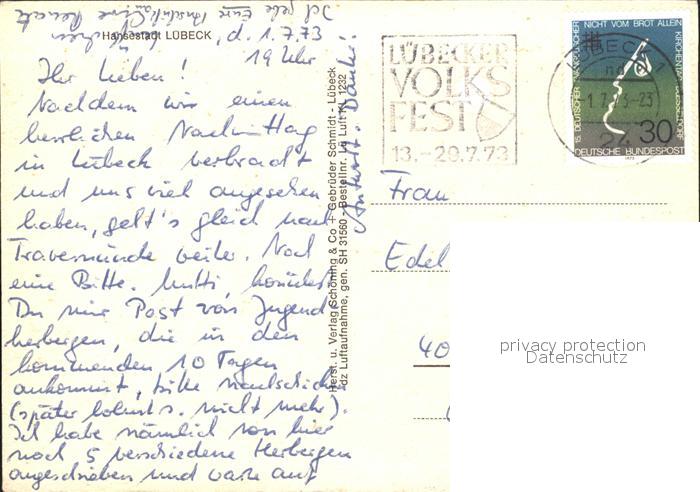 Hansestadt LÜBECK
, d. 1.7.73
19 Uhr
Ihr Lieben!
Nachdem wir einen
herrlichen Nachmittag
in Lübeck verbracht
und uns viel angesehen
haben, geht's gleich nach
Travemünde weiter. Noch
eine Bitte. Mutti, könntest
Du mir Post von Jugend
herbergen, die in den
kommenden 10 Tagen
ankommt, bitte nachschicken
(später lohnt's nicht mehr).
Ich habe nämlich von hier
noch 5 verschiedene Herbergen
angeschrieben und warte auf
Antwort. Danke!
Ich gebe Euch
Herst. u. Verlag Schöning & Co + Gebrüder Schmidt - Lübeck
dz Luftaufnahme, gen. SH 31560 - Bestellnr. Lü Luft KL 1232
LÜBECKER
VOLKS
FEST
13.-29.7.73
LÜBECK 1
1.7.73-23
24
15. DEUTSCHER
NICHT VOM BROT ALLEIN
KIRCHENTAG DÜSSELDORF
30
DEUTSCHE BUNDESPOST
1973
Frau
Edel
40
privacy protection
Datenschutz